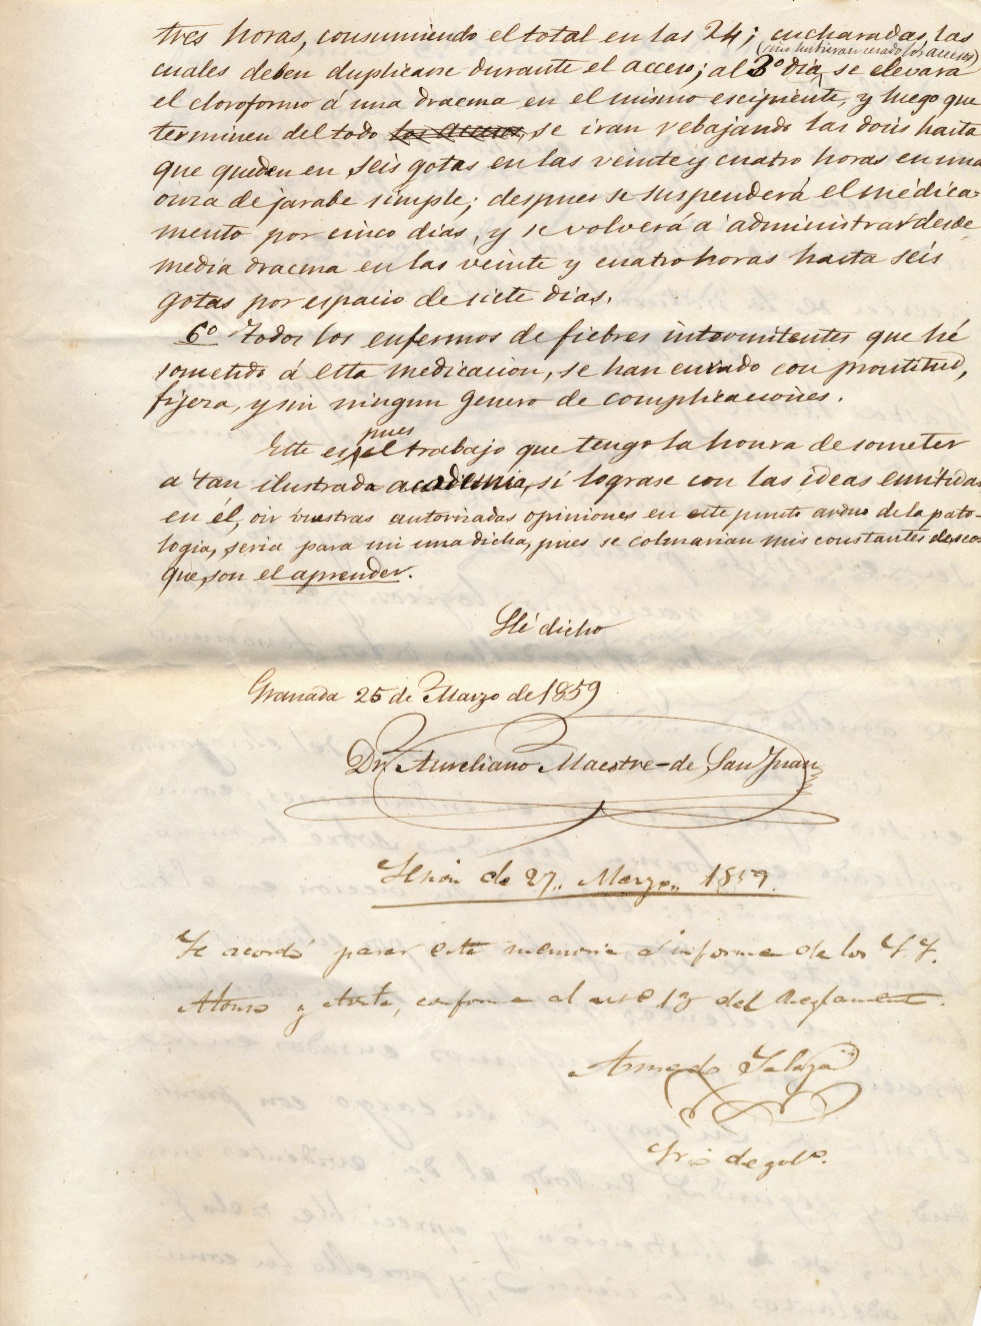 tres horas, consumiendo el total en las 24; cucharadas, las
(si no hubieran cesado los accesos)
cuales deben duplicarse durante el acceso; al 3º dia, se elevará
el cloroformo á una dracma en el mismo escipiente, y luego que
terminen del todo los accesos, se iran rebajando las dosis hasta
que queden en seis gotas en las veinte y cuatro horas en una
onza de jarabe simple; despues se suspenderá el médica-
mento por cinco dias, y se volverá a administrar desde
media dracma en las veinte y cuatro horas hasta séis
gotas por espacio de siete dias.
6º Todos los enfermos de fiebres intermitentes que hé
sometido á esta medicacion, se han curado con prontitud,
fijeza, y sin ningun genero de complicaciones.
pues
Este es el trabajo que tengo la honra de someter
a tan ilustrada academia, si lograse con las ideas emitidas
en él, oir vuestras autorizadas opiniones en este punto arduo de la pato-
logia, seria para mi una dicha, pues se colmarian mis constantes deseos
que, son el aprender.
Hé dicho
Granada 25 de Marzo de 1859
Dr. Aureliano Maestre-de San Juan
Sesion de 27,, Marzo,, 1859.
Se acordó pasar esta memoria á informe de los S. S.
Alonso y conforme al artº 13 del Reglamento.
Srio de gobº.